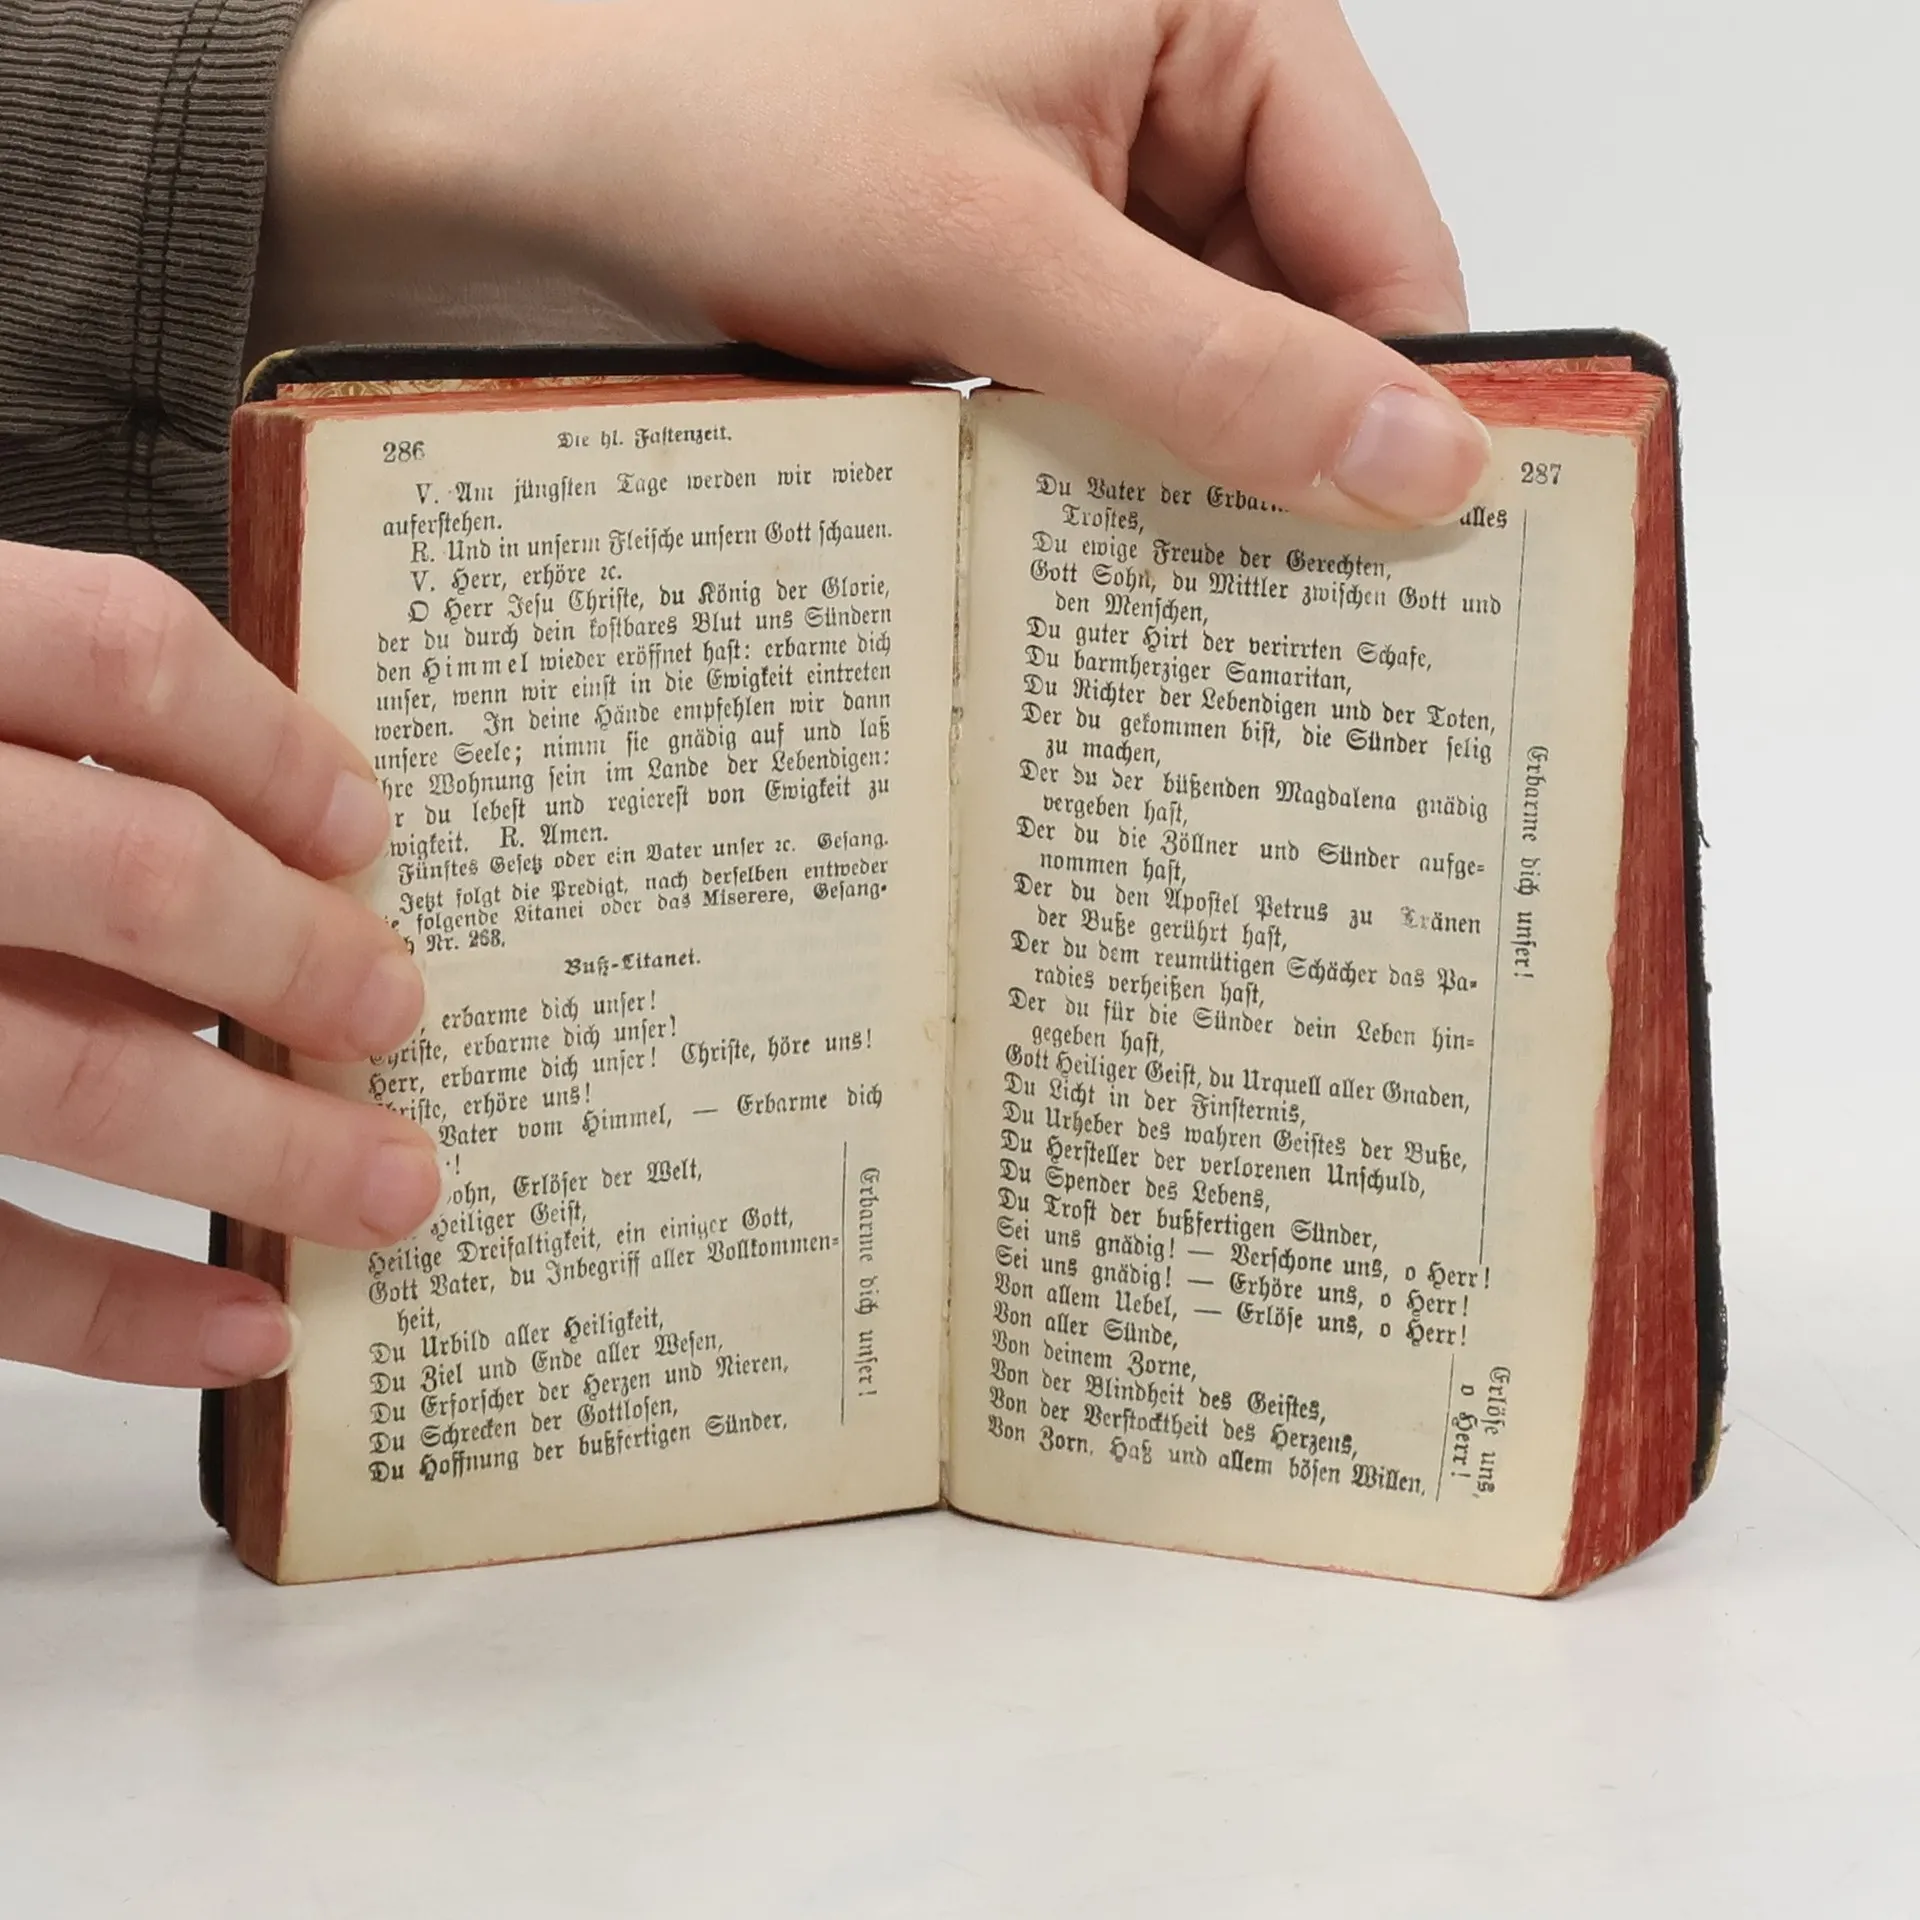 286
Die hl. Fastenzeit.
V. Am jüngsten Tage werden wir wieder
auferstehen.
R. Und in unserm Fleische unsern Gott schauen.
V. Herr, erhöre ꝛc.
O Herr Jesu Christe, du König der Glorie,
der du durch dein kostbares Blut uns Sündern
den Himmel wieder eröffnet hast: erbarme dich
unser, wenn wir einst in die Ewigkeit eintreten
werden. In deine Hände empfehlen wir dann
unsere Seele; nimm sie gnädig auf und laß
hre Wohnung sein im Lande der Lebendigen:
r du lebest und regierest von Ewigkeit zu
wigkeit. R. Amen.
Fünftes Gesetz oder ein Vater unser ꝛc. Gesang.
Jetzt folgt die Predigt, nach derselben entweder
ie folgende Litanei oder das Miserere, Gesang-
h Nr. 263.
Buß-Litanei.
, erbarme dich unser!
Christe, erbarme dich unser!
Herr, erbarme dich unser! Christe, höre uns!
Christe, erhöre uns!
Vater vom Himmel, — Erbarme dich
!
ohn, Erlöser der Welt,
Heiliger Geist,
Heilige Dreifaltigkeit, ein einiger Gott,
Gott Vater, du Inbegriff aller Vollkommen-
heit,
Du Urbild aller Heiligkeit,
Du Ziel und Ende aller Wesen,
Du Erforscher der Herzen und Nieren,
Du Schrecken der Gottlosen,
Du Hoffnung der bußfertigen Sünder,
Erbarme dich unser!
287
Du Vater der alles
Trostes,
Du ewige Freude der Gerechten,
Gott Sohn, du Mittler zwischen Gott und
den Menschen,
Du guter Hirt der verirrten Schafe,
Du barmherziger Samaritan,
Du Richter der Lebendigen und der Toten,
Der du gekommen bist, die Sünder selig
zu machen,
Der du der büßenden Magdalena gnädig
vergeben hast,
Der du die Zöllner und Sünder aufge-
nommen hast,
Der du den Apostel Petrus zu Tränen
der Buße gerührt hast,
Der du dem reumütigen Schächer das Pa-
radies verheißen hast,
Der du für die Sünder dein Leben hin-
gegeben hast,
Gott Heiliger Geist, du Urquell aller Gnaden,
Du Licht in der Finsternis,
Du Urheber des wahren Geistes der Buße,
Du Hersteller der verlorenen Unschuld,
Du Spender des Lebens,
Du Trost der bußfertigen Sünder,
Erbarme dich unser!
Sei uns gnädig! — Verschone uns, o Herr!
Sei uns gnädig! — Erhöre uns, o Herr!
Von allem Uebel, — Erlöse uns, o Herr!
Von aller Sünde,
Von deinem Zorne,
Von der Blindheit des Geistes,
Von der Verstocktheit des Herzens,
Von Zorn, Haß und allem bösen Willen,
Erlöse uns,
o Herr!